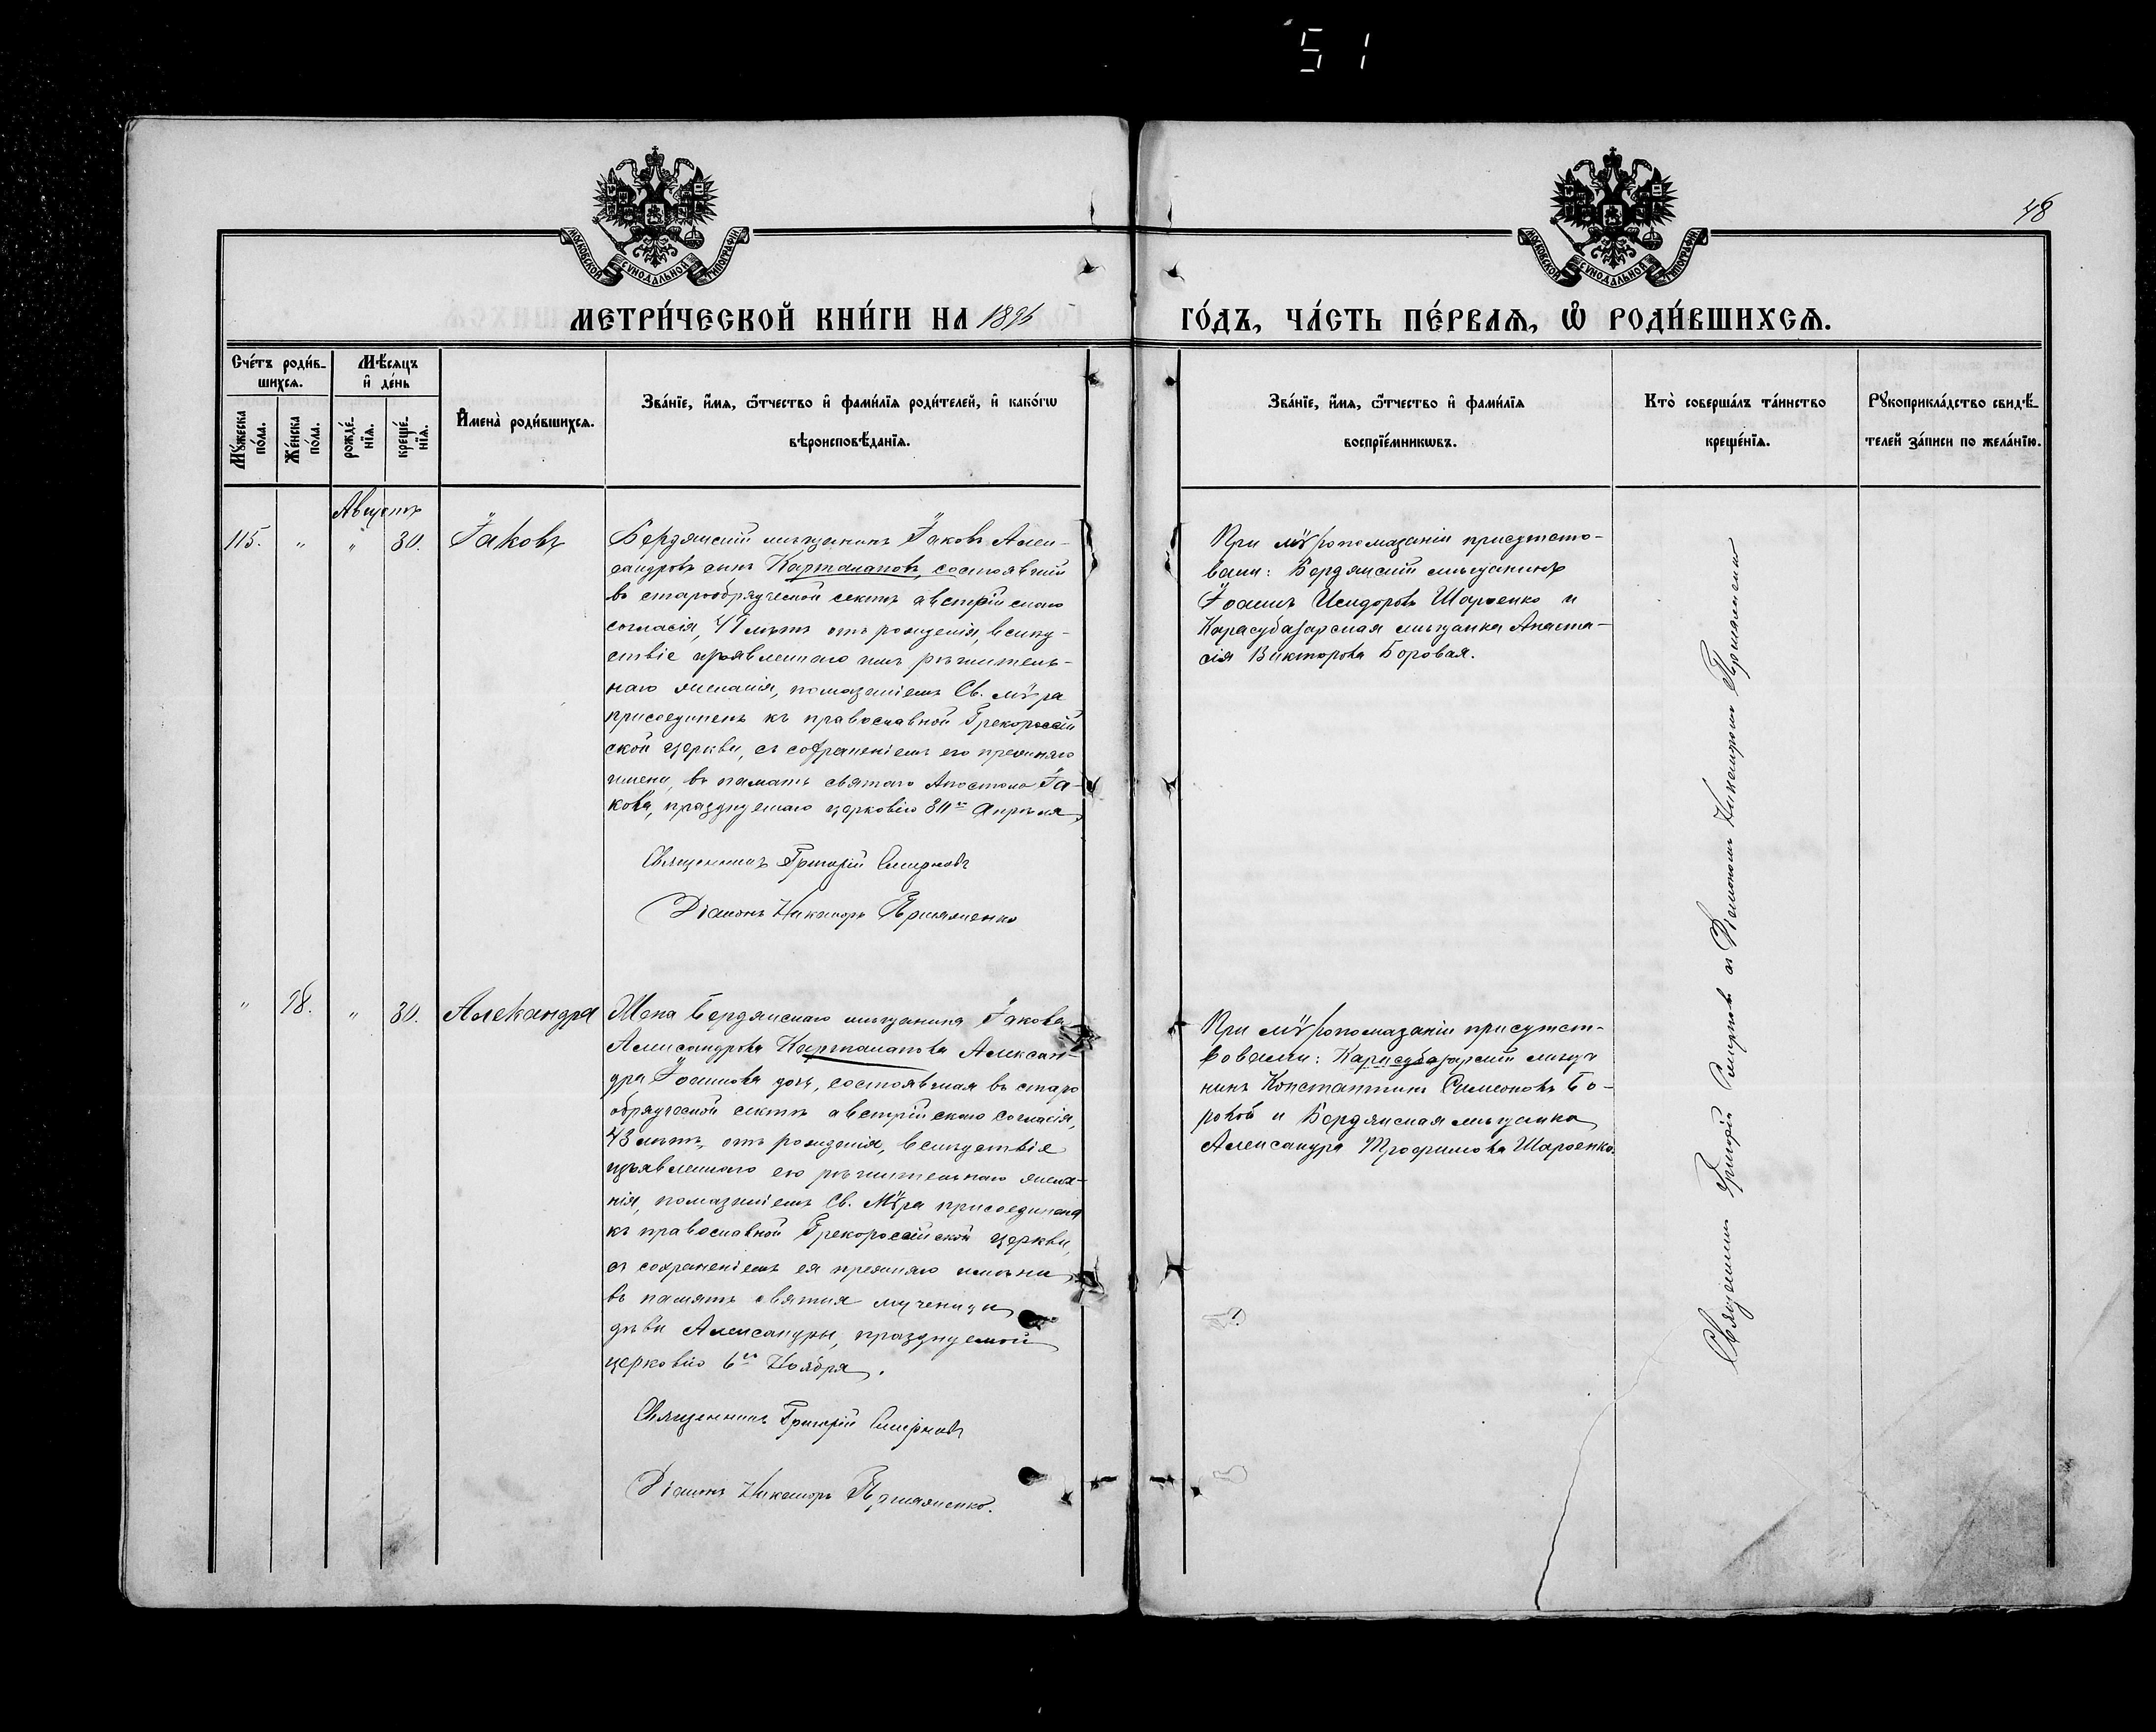 51
48
МОСКОВСКОЙ СУНОДАЛЬНОЙ ТИПОГРАФІИ
МОСКОВСКОЙ СУНОДАЛЬНОЙ ТИПОГРАФІИ
МЕТРИ́ЧЕСКОЙ КНИ́ГИ НА 1896
ГО́ДЪ, ЧА́СТЬ ПЕ́РВАѦ, Ѽ РОДИ́ВШИХСѦ.
Сче́тъ роди́в-
шихсѧ.
Мѣ́сяцъ
и҆ де́нь
Мꙋ́жеска
по́ла.
Же́нска
по́ла.
рожде́-
нїѧ.
креще́-
нїѧ.
И҆мена̀ роди́вшихсѧ.
Зва́нїе, и҆́мѧ, ѻ҆́тчество и҆ фами́лїѧ роди́телей, и҆ како́гѡ
вѣроисповѣ́данїѧ.
Зва́нїе, и҆́мѧ, ѻ҆́тчество и҆ фами́лїѧ
воспрїе́мникѡвъ.
Кто̀ соверша́лъ та́инство
креще́нїѧ.
Рꙋкоприкла́дство свидѣ́-
телей за́писи по жела́нїю.
Августъ
115. " " 30. Іаковъ
Бердянскій мѣщанинъ Іаковъ Алек-
сандровъ сынъ Карташовъ, состоявшій
въ старообрядческой сектѣ австрійскаго
согласія, 47 лѣтъ отъ рожденія, вслѣд-
ствіе изъявленнаго имъ рѣшитель-
наго желанія, помазаніемъ Св. мѵра
присоединенъ къ православной Грекороссій
ской церкви, съ сохраненіемъ его прежняго
имени, въ память святаго Апостола Іа-
кова, празднуемаго церковію 30го Апрѣля
Священникъ Григорій Смирновъ
Діаконъ Никаноръ Ярмаченко
При мѵропомазаніи присутство-
вали: Бердянскій мѣщанинъ
Іоаннъ Исидоровъ Шароенко и
Карасубазарская мѣщанка Анаста-
сія Викторова Боровая.
" 98. " 30. Александра
Жена Бердянскаго мѣщанина Іакова
Александрова Александ-
дра Іоаннова дочь, состоявшая въ старо
обрядческой сектѣ австрійскаго согласія,
43 лѣтъ, отъ рожденія, вслѣдствіе
изъявленнаго ею рѣшительнаго жела-
нія, помазаніемъ Св. Мѵра присоединена
къ православной Грекороссійской церкви,
съ сохраненіемъ ея прежняго имени
въ память святыя мученицы
дѣвы Александры, празднуемой
церковію 6го Ноября.
Священникъ Григорій Смирновъ
Діаконъ Никаноръ Ярмаченко.
При мѵропомазаніи присутст-
вовали: Карасубазарскій мѣща
нинъ Константинъ Симеоновъ Бо-
ровой и Бердянская мѣщанка
Александра Трофимова Шароенко.
Священникъ Григорій Смирновъ съ Діакономъ Никаноромъ